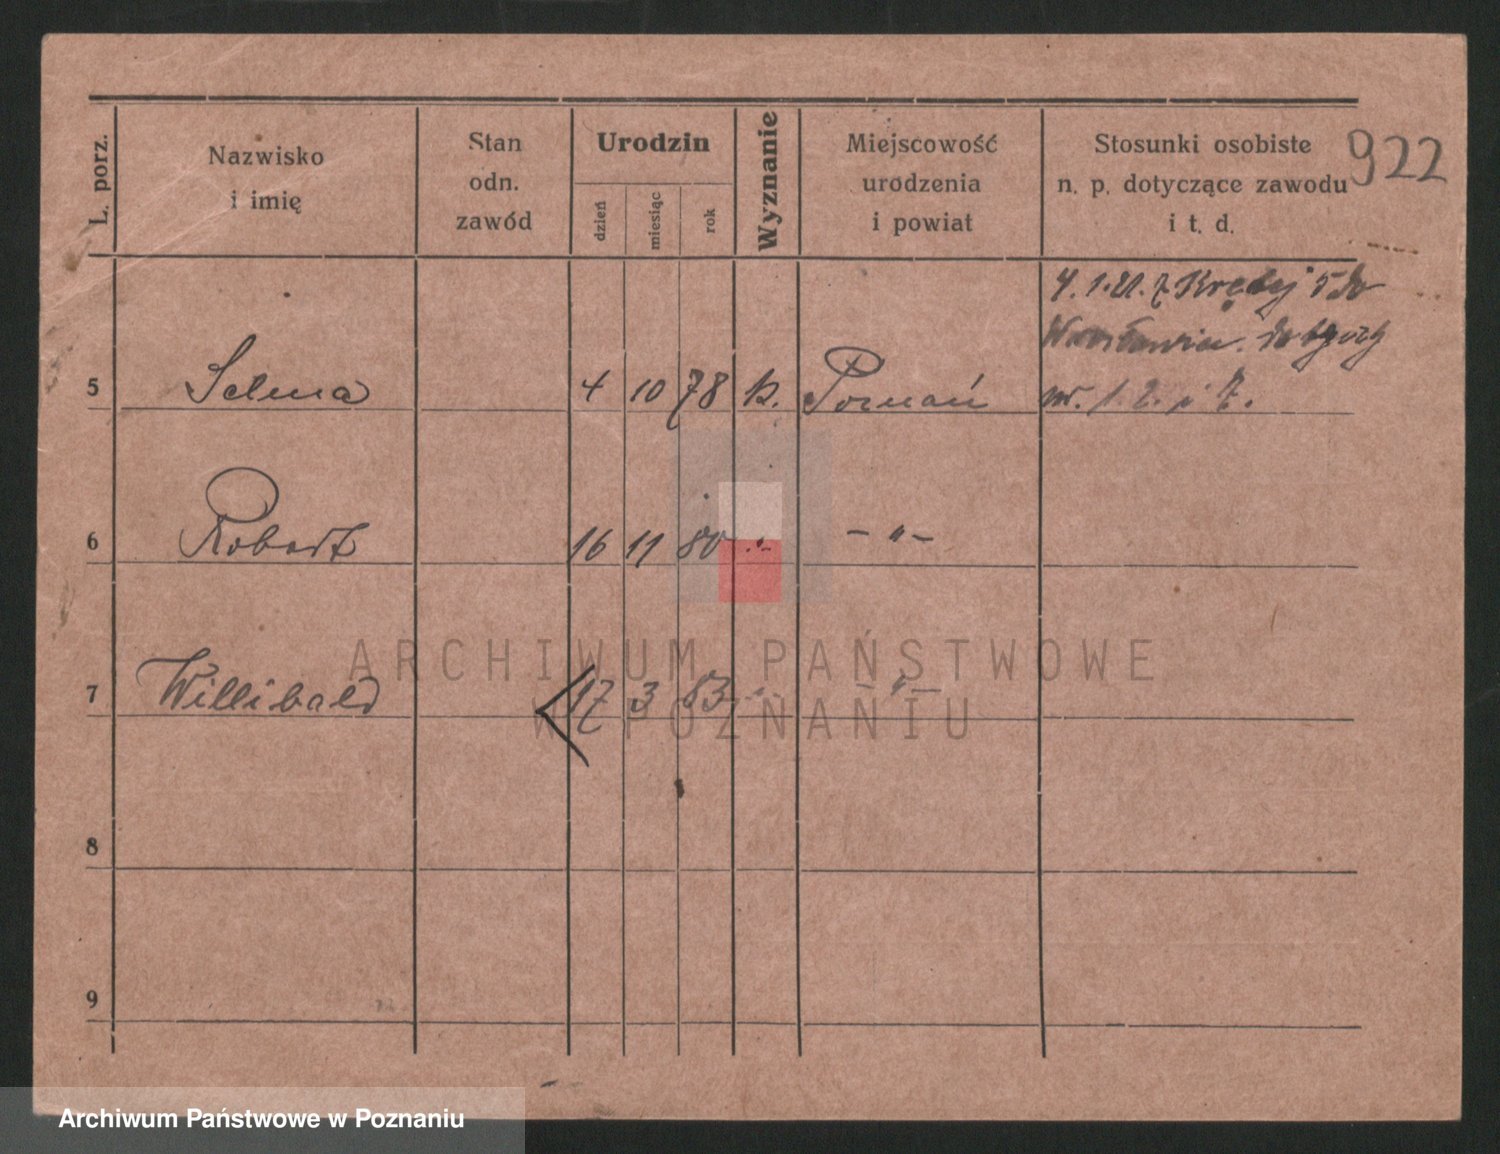 922
L. porz.
Nazwisko i imię
Stan odn. zawód
Urodzin
dzień
miesiąc
rok
Wyznanie
Miejscowość urodzenia i powiat
Stosunki osobiste n. p. dotyczące zawodu i t. d.
4. 1. 21. z do
Wrocławia.
5 Selma 4 10 78 k. Poznań nr. 1. 2. i 7.
6 Robert 16 11 80 -"- -"-
7 Willibald 17 3 83 -"- -"-
8
9
ARCHIWUM PAŃSTWOWE
W POZNANIU
Archiwum Państwowe w Poznaniu